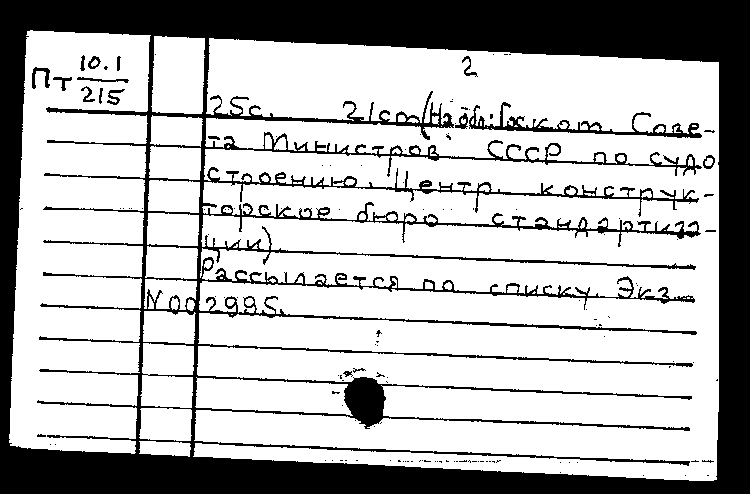 2
Пт 10.1
215
25с. 21cm (На обл: Гос.ком. Сове-
та Министров СССР по судо
строению. Центр. конструк-
торское бюро стандартиза-
ции).
Рассылается по списку. Экз.
N002995.